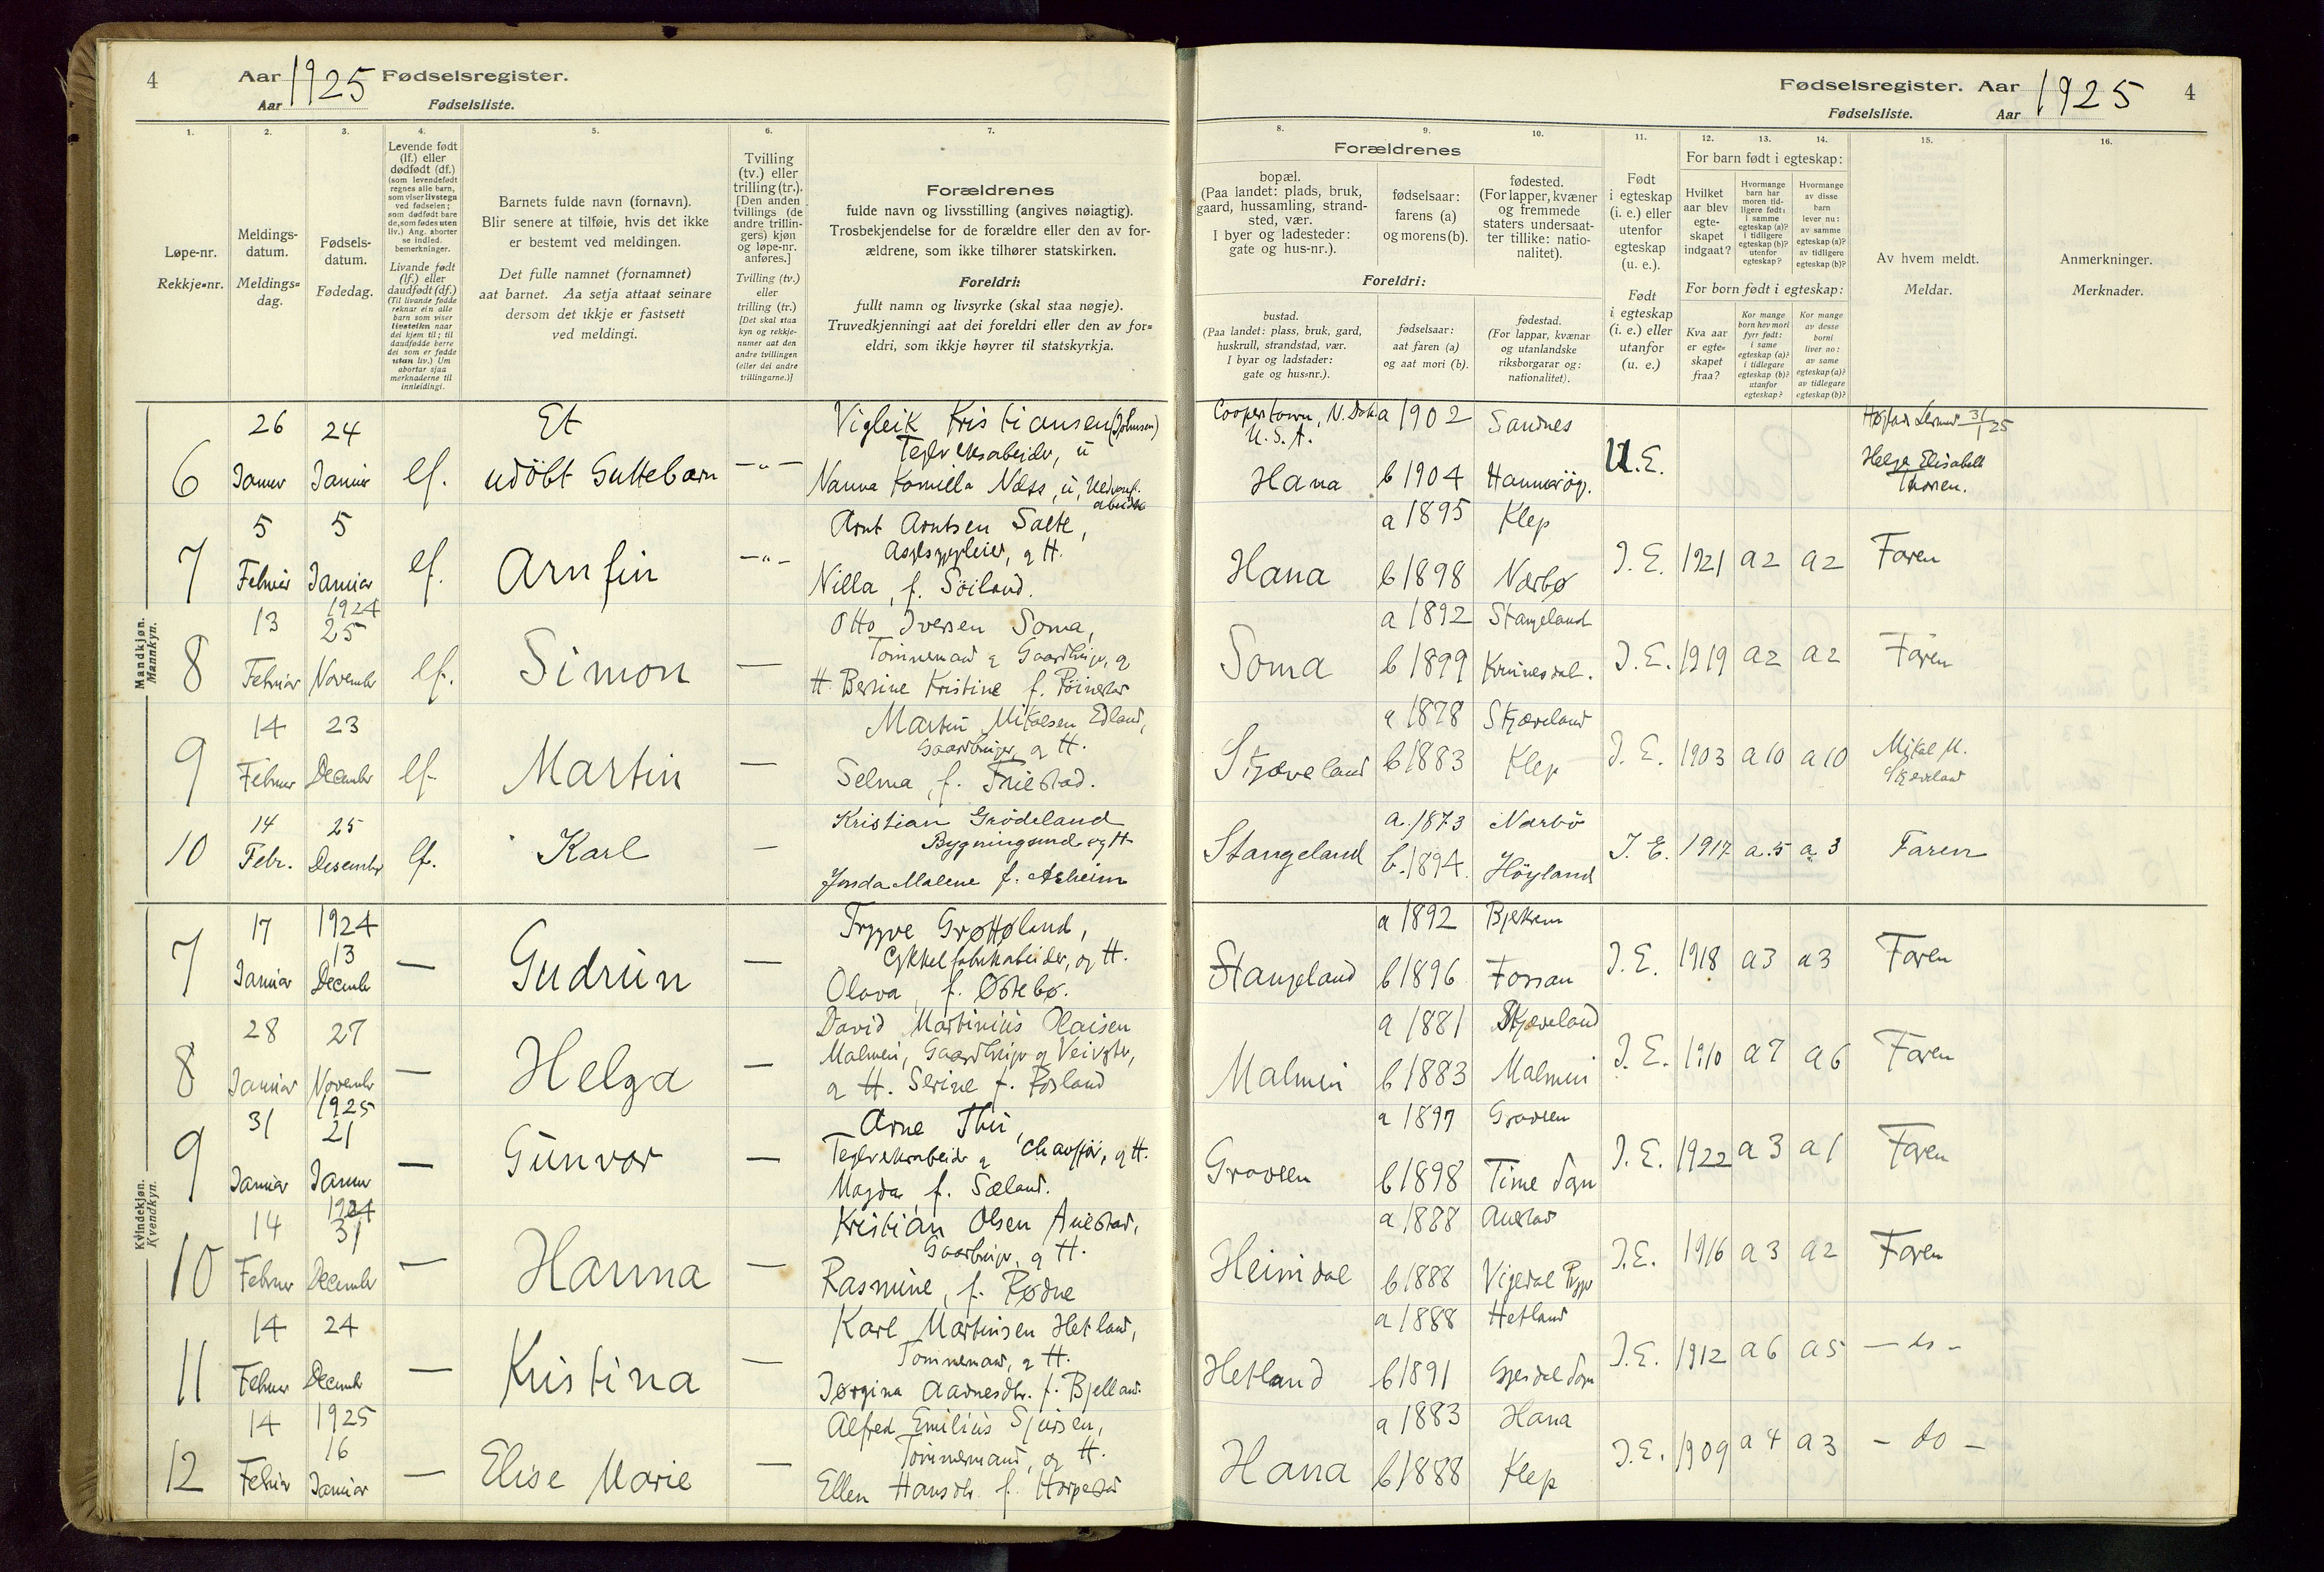 4
Aar 1925 Fødselsregister.
Aar Fødselsliste.
Fødselsregister. Aar 1925 4
Fødselsliste. Aar
1.
Løpe-nr.
Rekkje-nr.
2.
Meldings-
datum.
Meldings-
dag.
3.
Fødsels-
datum.
Fødedag.
4.
Levende født
(lf.) eller
dødfødt (df.)
(som levendefødt
regnes alle barn,
som viser livstegn
ved fødselen;
som dødfødt bare
de, som fødes uten
liv.) Ang. aborter
se indled.
bemerkninger.
Livande født
(lf.) eller
daudfødt (df.)
(Til livande fødde
reknar ein alle
barn som viser
livsteikn naar
dei kjem til; til
daudfødde berre
dei som er fødde
utan liv.) Um
abortar sjaa
merknaderne til
innleidingi.
5.
Barnets fulde navn (fornavn).
Blir senere at tilføie, hvis det ikke
er bestemt ved meldingen.
Det fulle namnet (fornamnet)
aat barnet. Aa setja attaat seinare
dersom det ikkje er fastsett
ved meldingi.
6.
Tvilling
(tv.) eller
trilling (tr.).
[Den anden
tvillings (de
andre trillin-
gers) kjøn
og løpe-nr.
anføres.]
Tvilling (tv.)
eller
trilling (tr.)
[Det skal staa
kyn og rekkje-
numer aat den
andre tvillingen
(eller dei andre
trillingarne.)]
7.
Forældrenes
fulde navn og livsstilling (angives nøiagtig).
Trosbekjendelse for de forældre eller den av for-
ældrene, som ikke tilhører statskirken.
Foreldri:
fullt namn og livsyrke (skal staa nøgje).
Truvedkjenningi aat dei foreldri eller den av for-
eldri, som ikkje høyrer til statskyrkja.
8.
Forældrenes
bopæl.
(Paa landet: plads, bruk,
gaard, hussamling, strand-
sted, vær.
I byer og ladesteder:
gate og hus-nr.).
Foreldri:
bustad.
(Paa landet: plass, bruk, gard,
huskrull, strandstad, vær.
I byar og ladstader:
gate og hus-nr.).
9.
fødselsaar:
farens (a)
og morens (b).
fødselsaar:
aat faren (a)
og aat mori (b).
10.
fødested.
(For lapper, kvæner
og fremmede
staters undersaat-
ter tillike: natio-
nalitet).
fødestad.
(For lappar, kvænar
og utanlandske
riksborgarar og:
nationalitet).
11.
Født
i egteskap
(i. e.) eller
utenfor
egteskap
(u. e.).
Født
i egteskap
(i. e.) eller
utanfor
(u. e.)
12.
13.
14.
For barn født i egteskap:
Hvilket
aar blev
egte-
skapet
indgaat?
Hvormange
barn har
moren tid-
ligere født:
i samme
egteskap (a)?
i tidligere
egteskap (b)?
utenfor
egteskap?
Hvormange
av disse
barn
lever nu:
av samme
egteskap (a)?
av tidligere
egteskap (b)?
For born født i egteskap:
Kva aar
er egte-
skapet
fraa?
Kor mange
born hev mori
fyrr født:
i same
egteskap (a)?
i tidlegare
egteskap (b)?
utanfor
egteskap?
Kor mange
av desse
borni
liver no:
av same
egteskap (a)?
av tidlegare
egteskap (b)?
15.
Av hvem meldt.
Meldar.
16.
Anmerkninger.
Merknader.
Mandkjøn.
Mannkyn.
6 26 Januar 24 Januar lf. Et
udöbt Guttebarn —"—
Vigleik Kristiansen (Johnsen)
Teglverksabeider, u
Nanna Kamilla Næss, u,
Cooperstown, N. Dak. a 1902 Sandnes
U. S. A.
Hana b 1904 U. E.
31/1 25
Helga Elisabeth
7 5 Februar 5 Januar lf. Arnfin —"—
Arnt Arntsen Salte,
og H.
Nilla, f. Söiland.
Hana a 1895 Klep
b 1898 Nærbø I. E. 1921 a 2 a 2 Faren
8 13 Februar 1924 25 November lf. Simon —
Otto Iversen Soma,
Tømmermand og Gaardbruger, og
H. Berine Kristine f.
Soma a 1892 Stangeland
b 1899 I. E. 1919 a 2 a 2 Faren
9 14 Februar 23 December lf. Martin —
Martin Mikalsen Edland,
Gaardbruger, og H.
Selma, f. Friestad.
Skjæveland a 1878 Skjæveland
b 1883 Klep I. E. 1903 a 10 a 10 Mikal M.
Skjæveland
10 14 Febr. 25 Desember lf. Karl —
Kristian Grödeland
Bygningsmd og H
Malene f. Asheim
Stangeland a. 1873 Nærbö
b. 1894. Höyland I. E. 1917 a. 5 a 3 Faren
Kvindekjøn.
Kvendkyn.
7 17 Januar 1924 13 Decembr — Gudrun —
Trygve Grøttøland,
Cykkelfabrikabeider, og H.
Olava, f. Østebø.
Stangeland a 1892 Bjerkrem
b 1896 Forsan I. E. 1918 a 3 a 3 Faren
8 28 Januar 27 November — Helga —
David Martinius Olaisen
Malmin, Gaardbruger og
og H. Serine f.
Malmin a 1881 Skjæveland
b 1883 Malmin I. E. 1910 a 7 a 6 Faren
9 31 Januar 1925 21 Januar — Gunvor —
Arne Thu,
Teglverksabeider og Chauffør, og H.
Magda, f. Sæland.
Gravren a 1897 Gravren
b 1898 Time Sogn I. E. 1922 a 3 a 1 Faren
10 14 Februar 1924 31 December — Hanna —
Kristian Olsen Auestad,
Gaardbruger, og H.
Rasmine, f. Rødne
Heimdal a 1888 Auestad
b 1888 I. E. 1916 a 3 a 2 Faren
11 14 Februar 24 Decembr — Kristina —
Karl Martinsen Hetland,
Tømmermand, og H.
Jørgina Aadnesdtr. f. Bjelland.
Hetland a 1888 Hetland
b 1891 Gjesdal Sogn I. E. 1912 a 6 a 5 — do —
12 14 Februar 1925 16 Januar — Elise Marie —
Alfred Emilius Sjursen,
Tømmermand, og H.
Ellen Hansdtr. f. Harpestad
Hana a 1883 Hana
b 1888 Klep I. E. 1909 a 4 a 3 — do —